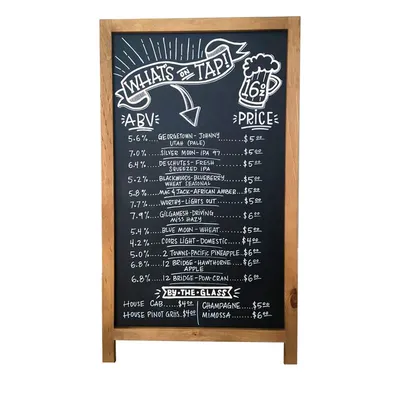 WHAT'S ON TAP!
16 oz
ABV
PRICE
5.6% GEORGETOWN-JOHNNY UTAH (PALE) $5.00
7.0% SILVER MOON-IPA 97 $5.00
6.4% DESCHUTES-FRESH SQUEEZED IPA $5.00
5.2% BLACKWOODS-BLUEBERRY WHEAT SEASONAL $5.00
5.8% MAC & JACK-AFRICAN AMBER $5.00
7.7% WORTHY-LIGHTS OUT $5.00
7.9% GILGAMESH-DRIVING MISS HAZY $6.00
5.4% BLUE MOON-WHEAT $5.00
4.2% COORS LIGHT-DOMESTIC $4.00
5.0% 2 TOWNS-PACIFIC PINEAPPLE $6.00
6.8% 12 BRIDGE-HAWTHORNE APPLE $6.00
6.8% 12 BRIDGE-POM CRAN $6.00
BY•THE•GLASS
HOUSE CAB $4.00 CHAMPAGNE $5.00
HOUSE PINOT GRIS $4.00 MIMOSSA $6.00